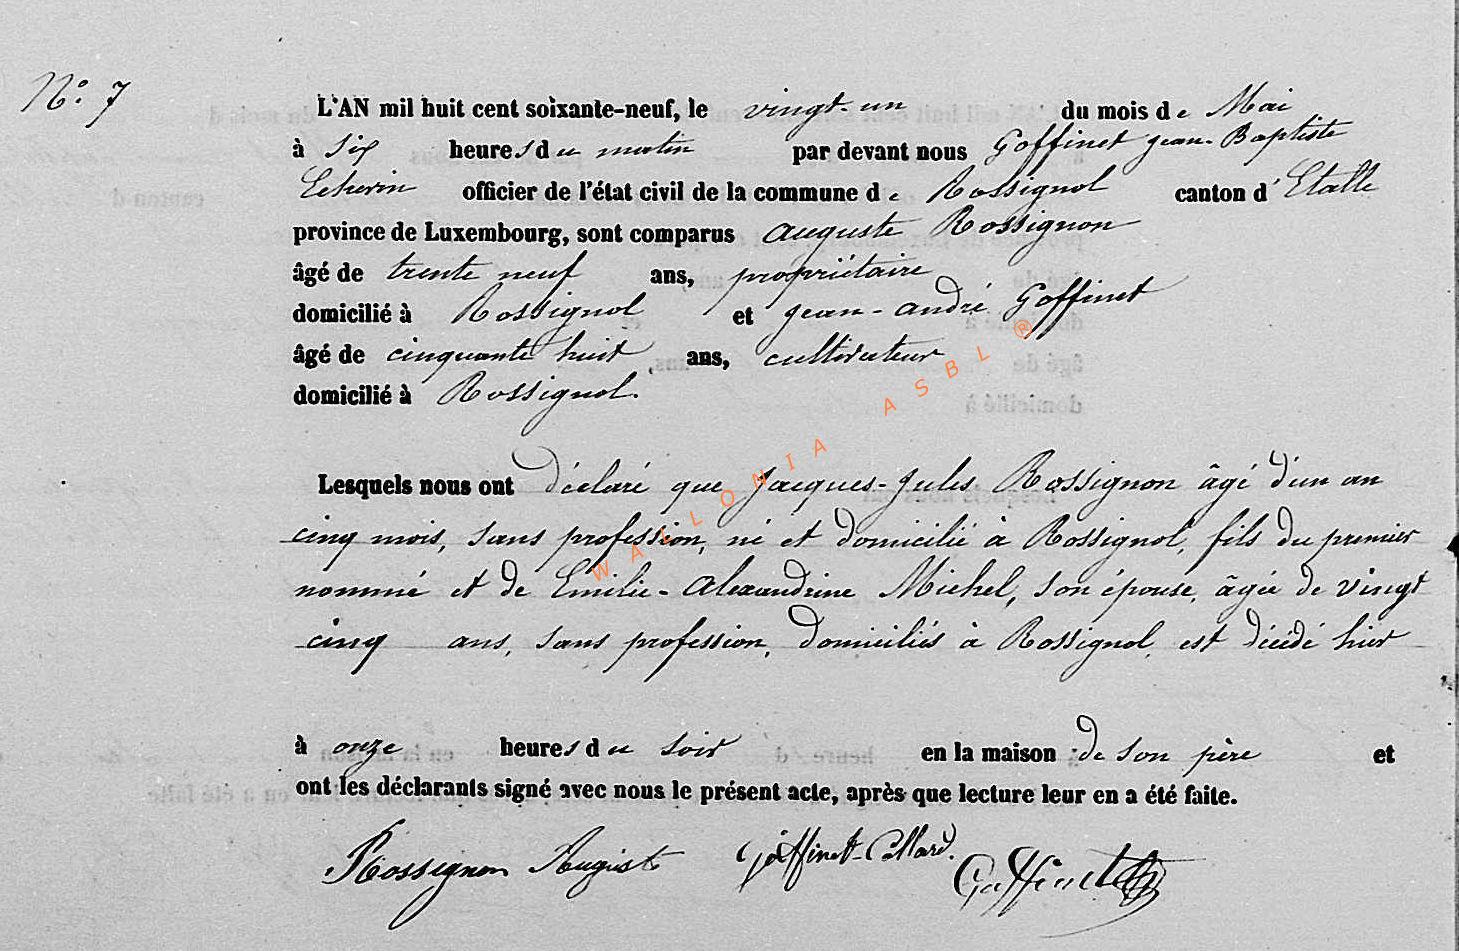 N.° 7
L'AN mil huit cent soixante-neuf, le vingt-un du mois de Mai
à six heures du matin par devant nous Goffinet Jean-Baptiste
Echevin officier de l'état civil de la commune de Rossignol canton d'Etalle
province de Luxembourg, sont comparus Auguste Rossignon
âgé de trente neuf ans, propriétaire
domicilié à Rossignol et Jean-André Goffinet
âgé de cinquante huit ans, cultivateur
domicilié à Rossignol.
Lesquels nous ont déclaré que Jacques-Jules Rossignon âgé d'un an
cinq mois, sans profession, né et domicilié à Rossignol, fils du premier
nommé et de Emilie-Alexandrine Michel, son épouse, âgée de vingt
cinq ans, sans profession, domiciliés à Rossignol, est décédé hier
à onze heures du soir en la maison de son père et
ont les déclarants signé avec nous le présent acte, après que lecture leur en a été faite.
Rossignon Auguste Goffinet-Collard. Goffinet
WALLONIA ASBL ®